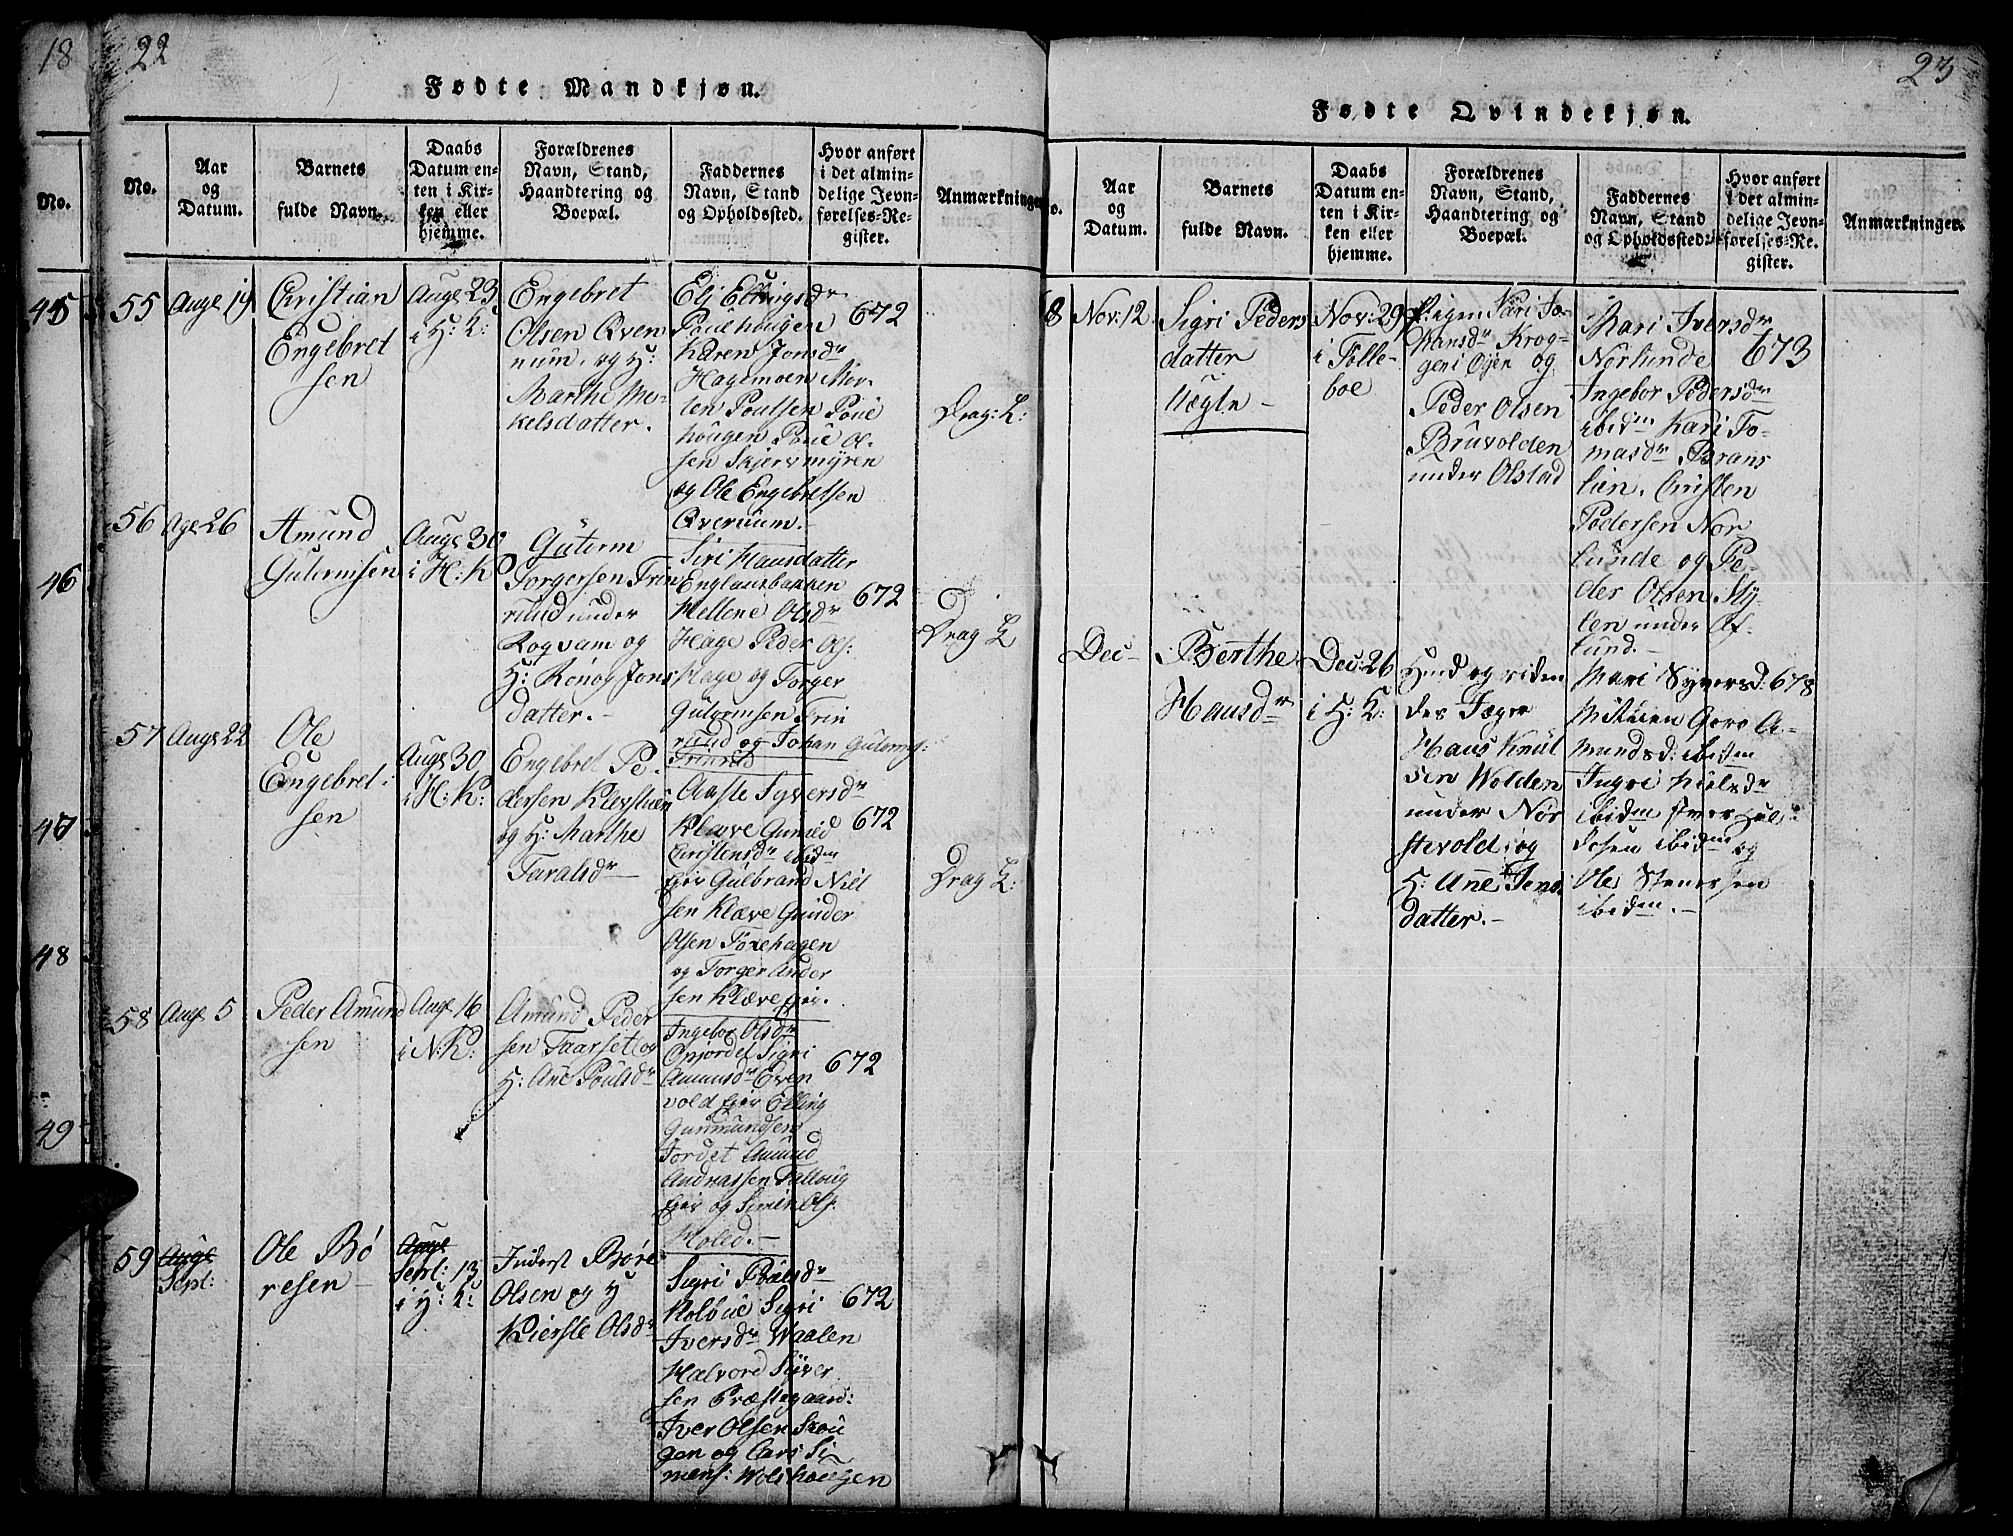 18
No.
45
46
47
48
49
22
Fødte Mandkjøn.
No.
Aar
og
Datum.
Barnets
fulde Navn.
Daabs
Datum en-
ten i Kir-
ken eller
hjemme.
Forældrenes
Navn, Stand,
Haandtering og
Boepæl.
Faddernes
Navn, Stand
og Opholdssted.
Hvor anført
i det almin-
delige Jevn-
førelses-Re-
gister.
Anmærkninger
55
Aug: 19
Christian
Engebret
sen
Aug: 23
i H: K:
Engebret
Olsen Qven
num, og H:
Marthe Me-
kelsdatter.
Eli
Pouehougen
Karen Jonsdr
Hagemoen Mor-
ten Poulsen Poue
hougen Poue Ol-
sen Skjersmyren
og Ole Engebretsen
Qvernum.-
672
Drag: L:
56
Age 26
Amund
Gulormsen
Aug: 30
i H: K
Gutorm
Torgersen Trin
rund under
Rogvam og
H: Rønog Jons
datter.-
Siri Hansdatter
Englansbakken
Mellene Olsdr
Hage Peder Ols:
Hage og Torger
Gulormsen Trin
rund og Johan Gulorms:
Trinrud
672
Drag L
57
Aug: 22
Ole
Engebret-
sen
Aug: 30
i H: K:
Engebret Pe-
dersen Klevstuen
og H: Marthe
Taralsdr
Aaste Syversdr
Kleve Gunild
Christensdr ibidm
Ejer Gulbrand Niel
sen Klæve Gunder
Olsen Torehagen
og Torger Ander
sen Klæve Ejer.
672
Drag L:
58
Aug: 5
Peder Amund
sen
Aug: 16
i N: K:
Amund Peder
sen Faarset og
H: Ane Poulsdr
Ingebor Olsdr
Opjordet Sigri
Amunsdr Even
vold Ejer Elling
Gunmundsen
Jordet Amund
Andreassen
Ejer og Simen Ols:
Holed.-
672
59
Aug:
Sept:
Ole Bø
resen
Aug:
Sept: 13
i H: K:
Inderst Børe
Olsen og H
Kierste Olsdr
Sigri Poulsdr
Holbue Sigri
Iversdr Waalen
Halvord Siver
sen Præstegaard:
Iver Olsen Skou
gen og Lars Si
mens: Wolshougen
672
23
Fødte Qvindekjøn.
o.
Aar
og
Datum.
Barnets
fulde Navn.
Daabs
Datum en-
ten i Kir-
ken eller
hjemme.
Forældrenes
Navn, Stand,
Haandtering og
Boepæl.
Faddernes
Navn, Stand
og Opholdssted.
Hvor anført
i det almin-
delige Jevn-
førelses-Re-
gister.
Anmærkninger.
8
Nov: 12
Sigri Peders
datter
Uægte -
Nov: 29
i Folle-
boe
Pigen Kari Jo-
hansdr Krog-
gen i Øyen og
Peder Olsen
Bruvolden
under Olstad
Mari Iversdr
Nørlunde
Ingebor Pedersdr
ibidm Kari To-
masdr Brans
lien, Christen
Pedersen Nor
lunde og Pe-
der Olsen My-
len under Øf-
lund.-
673
Dec-
Berthe
Hansdr
Dec: 26
i H: K:
Hans Knud
sen Wolden
under Nor
stevold og
H: Ane Jens
datter.-
Mari Syversd:
Goro A-
mundsd: ibidm
Ingri Nielsdr
ibidm
ibidm og
Ole Stenersen
ibidm.-
678